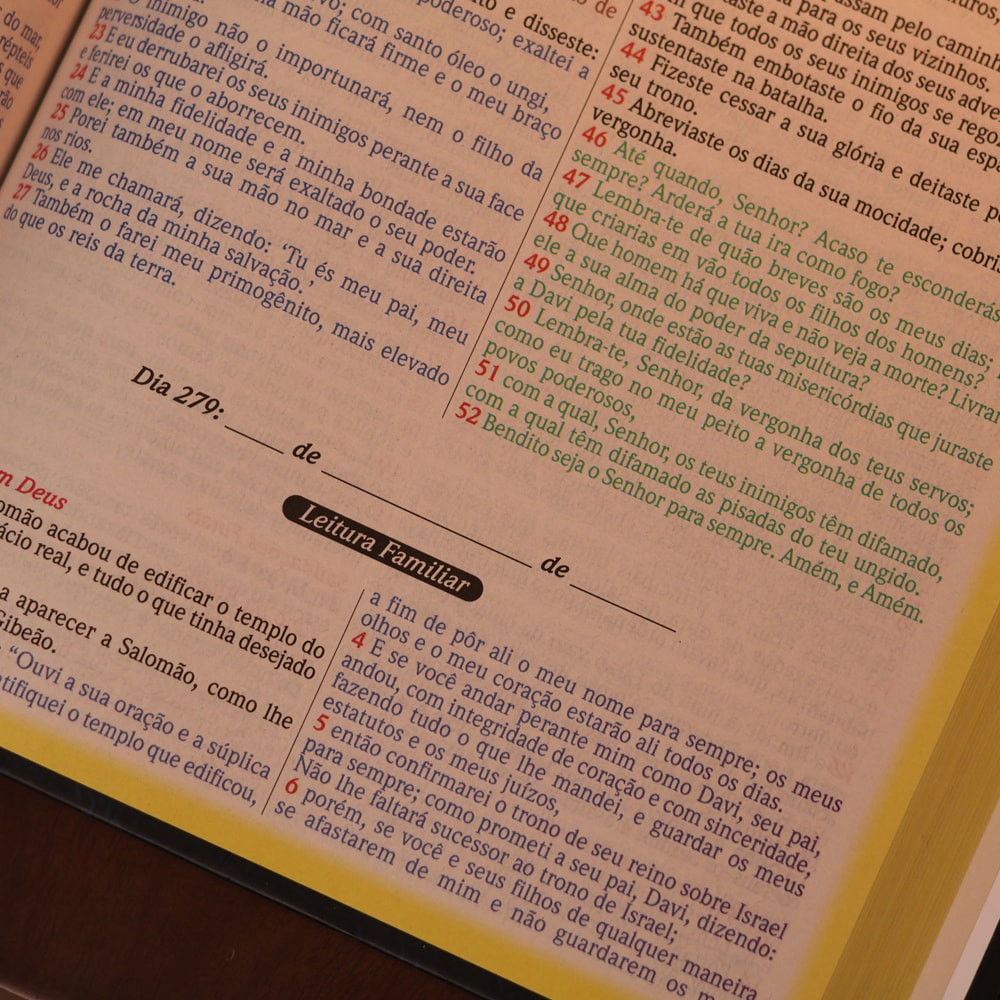 do mar,
répteis
que
rão
poderoso; exaltei a
com santo óleo o ungi,
mão ficará firme e o meu braço
inimigo não o importunará, nem o filho da
perversidade o afligirá.
23 E eu derrubarei os seus inimigos perante a sua face
e ferirei os que o aborrecem.
24 E a minha fidelidade e a minha bondade estarão
com ele; em meu nome será exaltado o seu poder.
25 Porei também a sua mão no mar e a sua direita
nos rios.
26 Ele me chamará, dizendo: ‘Tu és meu pai, meu
Deus, e a rocha da minha salvação.’
27 Também o farei meu primogênito, mais elevado
do que os reis da terra.
e disseste:
passam pelo caminho
para os seus vizinhos.
43 Também embotaste o fio da sua
sustentaste na batalha.
44 Fizeste cessar a sua glória e deitaste
seu trono.
45 Abreviaste os dias da sua mocidade;
vergonha.
46 Até quando, Senhor? Acaso te esconderás
sempre? Arderá a tua ira como fogo?
47 Lembra-te de quão breves são os meus dias;
que criarias em vão todos os filhos dos homens?
48 Que homem há que viva e não veja a morte?
ele a sua alma do poder da sepultura?
49 Senhor, onde estão as tuas misericórdias que juraste
a Davi pela tua fidelidade?
50 Lembra-te, Senhor, da vergonha dos teus servos;
como eu trago no meu peito a vergonha de todos os
povos poderosos,
51 com a qual, Senhor, os teus inimigos têm difamado,
com a qual têm difamado as pisadas do teu ungido.
52 Bendito seja o Senhor para sempre. Amém, e Amém.
Dia 279: ____ de ____ de ____
Leitura Familiar
m Deus
omão acabou de edificar o templo do
ácio real, e tudo o que tinha desejado
a aparecer a Salomão, como lhe
Gibeão.
“Ouvi a sua oração e a súplica
tifiquei o templo que edificou,
a fim de pôr ali o meu nome para sempre; os meus
olhos e o meu coração estarão ali todos os dias.
4 E se você andar perante mim como Davi, seu pai,
andou, com integridade de coração e com sinceridade,
fazendo tudo o que lhe mandei, e guardar os meus
estatutos e os meus juízos,
5 então confirmarei o trono de seu reino sobre Israel
para sempre; como prometi a seu pai, Davi, dizendo:
Não lhe faltará sucessor ao trono de Israel;
6 porém, se você e seus filhos de qualquer maneira
se afastarem de mim e não guardarem os